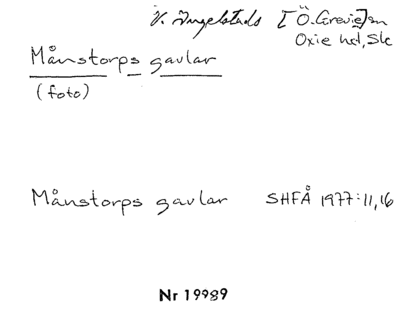 V. Ingelstads [Ö. Grevie] sn
Oxie hd, Sk
Månstorps gavlar
(foto)
Månstorps gavlar SHFÅ 1977:11,16
Nr 19989